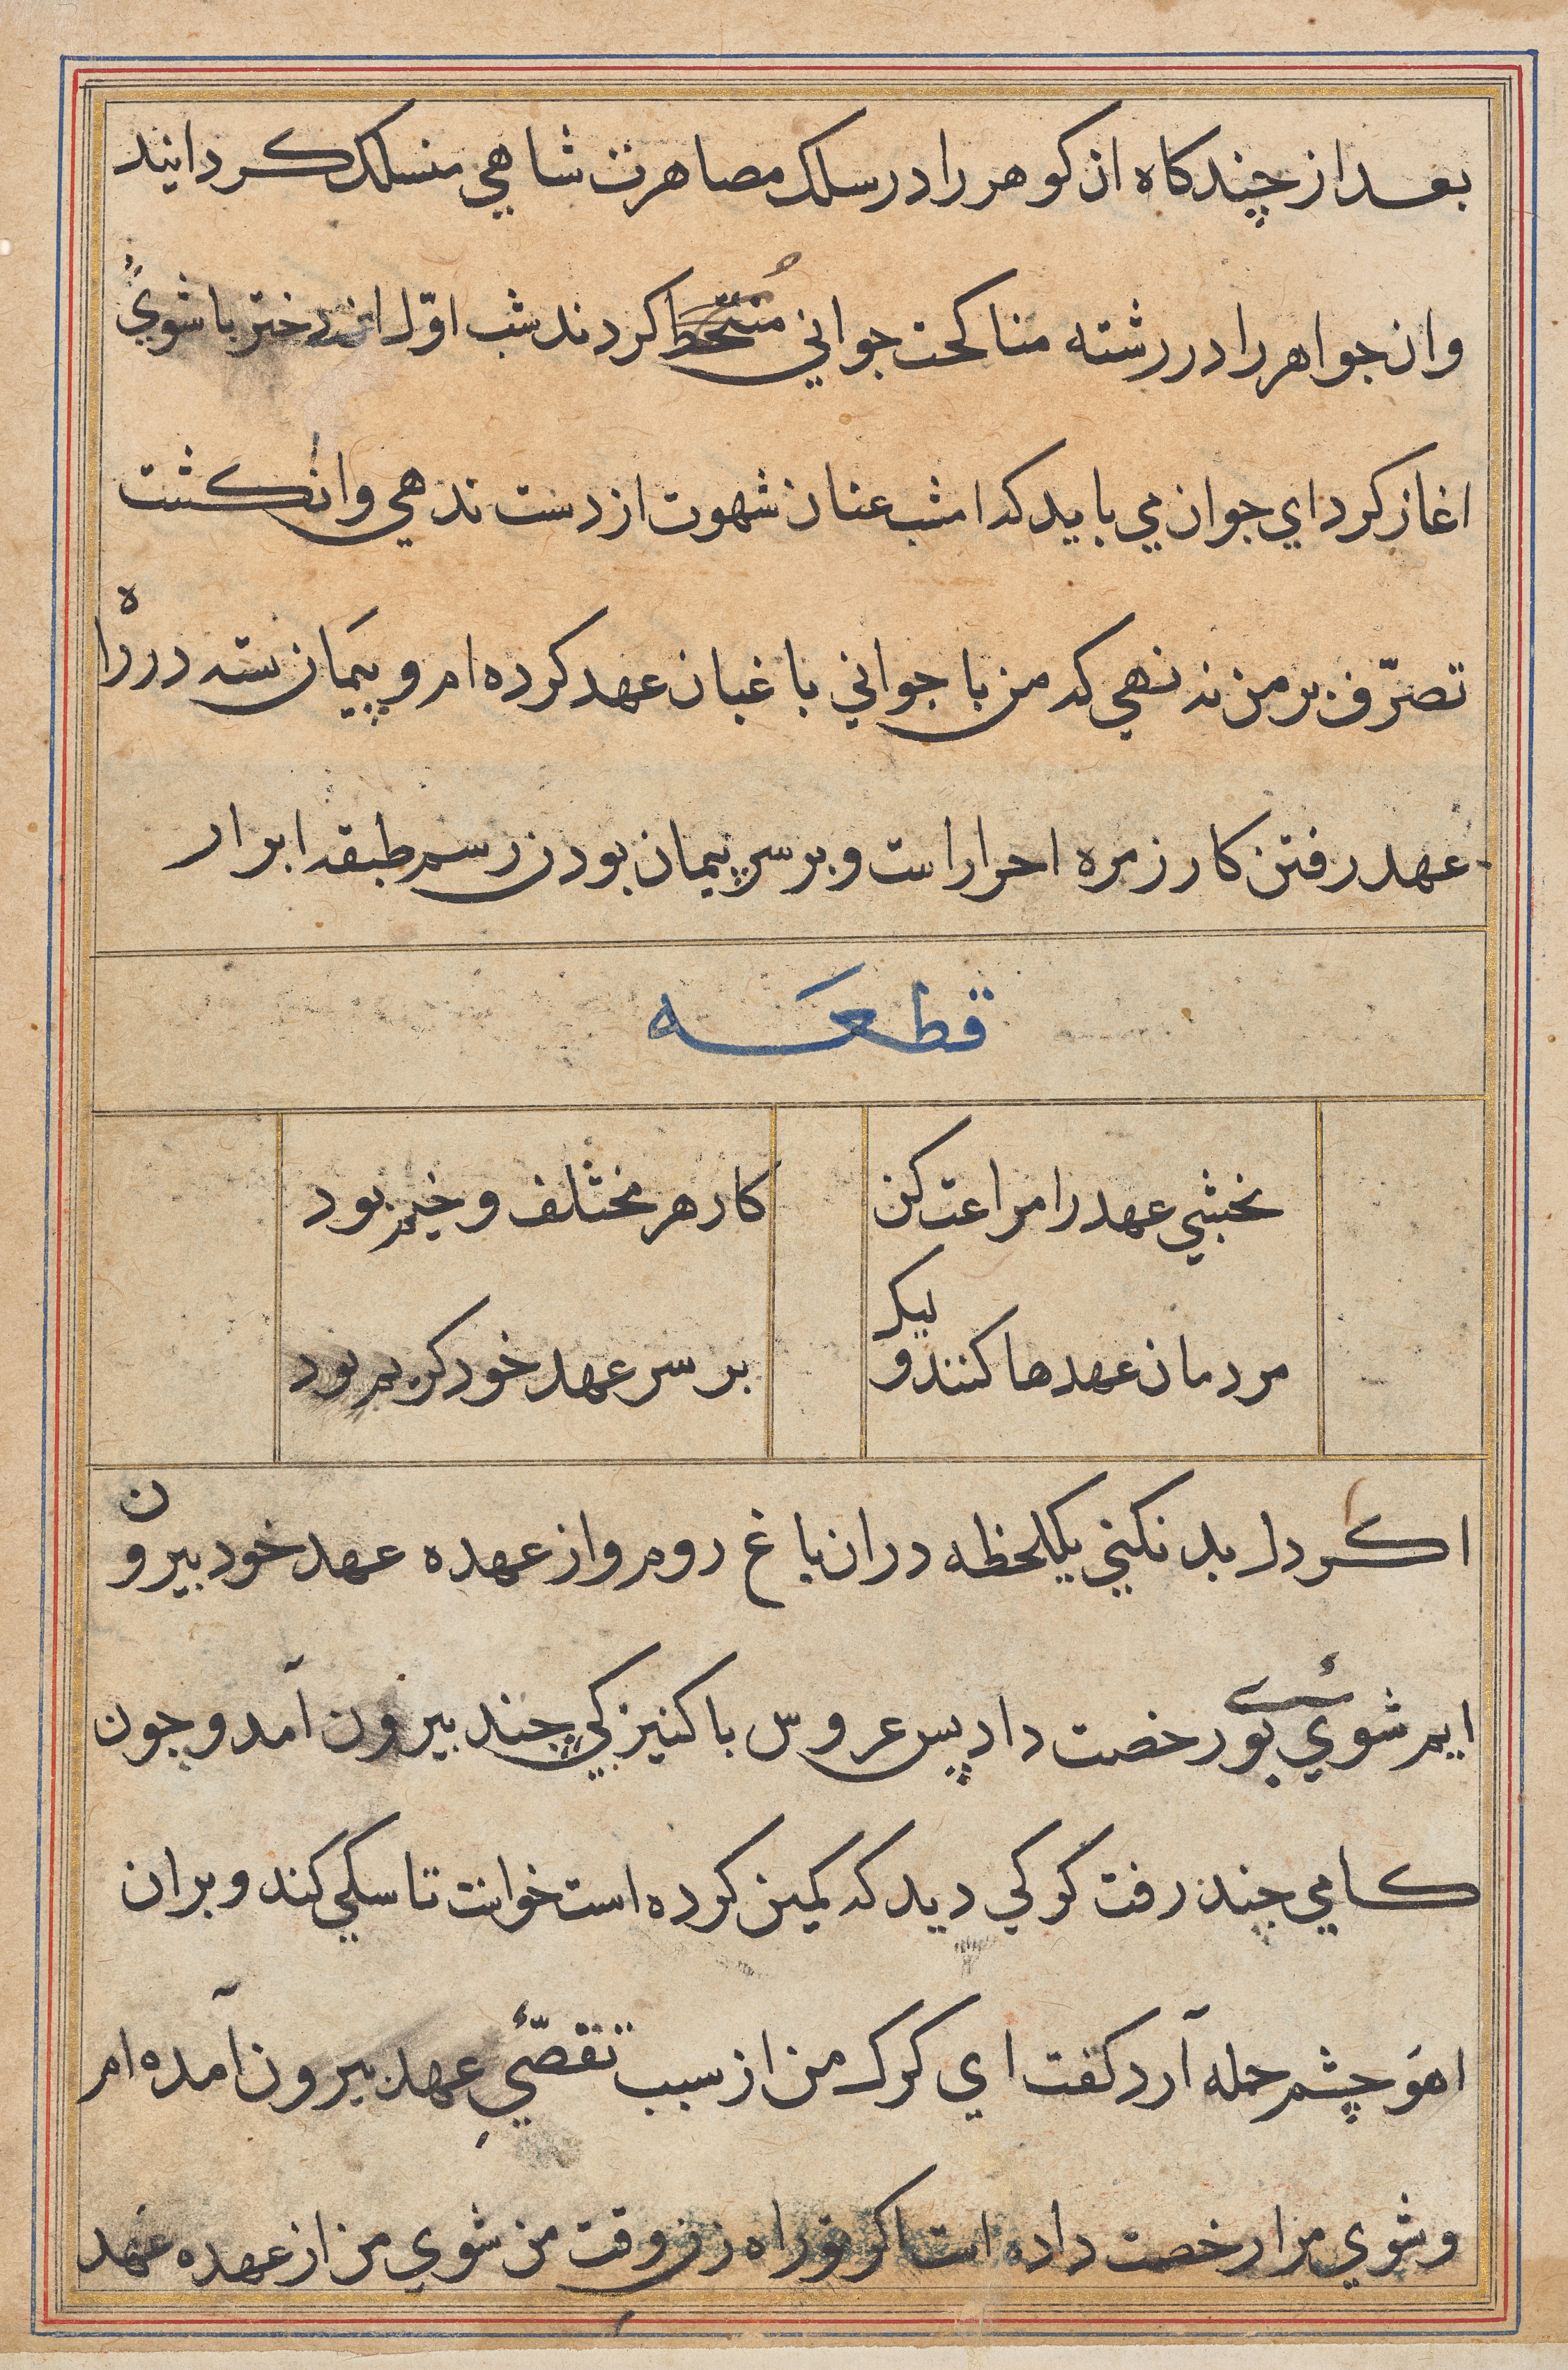 بعد از چند كاه ان كوهر را در سلك مصاهرت شاهي منسلك كردانيد
وان جواهر را در رشته مناكحت جواني منخط كردند شب اوّل ان دختر با شوي
اغاز كرد اي جوان مي بايد كه امشب عنان شهوت از دست ندهي وانكشت
تصرّف بر من ننهي كه من با جواني باغبان عهد كرده ام و پيمان بسته در راه
عهد رفتن كار زمره احرار است و بر سر پيمان بودن رسم طبقه ابرار
قطعه
نخشبي عهد را مراعت كن كار هر مختلف وخيم بود
مردمان عهدها كنند و ليك بر سر عهد خود كريم بود
اكر دل بد نكني يكلحظه دران باغ روم و از عهده عهد خود بيرون
ايم شوي رخصت داد پس عروس با كنيزكي چند بيرون آمد و جون
كامي چند رفت كركي ديد كه كمين كرده است خواست تا سكي كند و بران
اهو چشم حمله آرد كفت اي كرك من از سبب تقصّي عهد بيرون آمده ام
و شوي مرا رخصت داده است اكر تو راه زني وقت من شوي من از عهده عهد